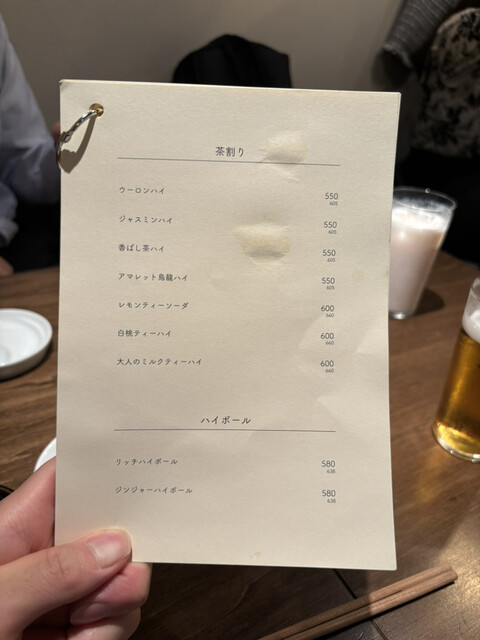 茶割り
ウーロンハイ 550
605
ジャスミンハイ 550
605
香ばし茶ハイ 550
605
アマレット烏龍ハイ 550
605
レモンティーソーダ 600
660
白桃ティーハイ 600
660
大人のミルクティーハイ 600
660
ハイボール
リッチハイボール 580
638
ジンジャーハイボール 580
638